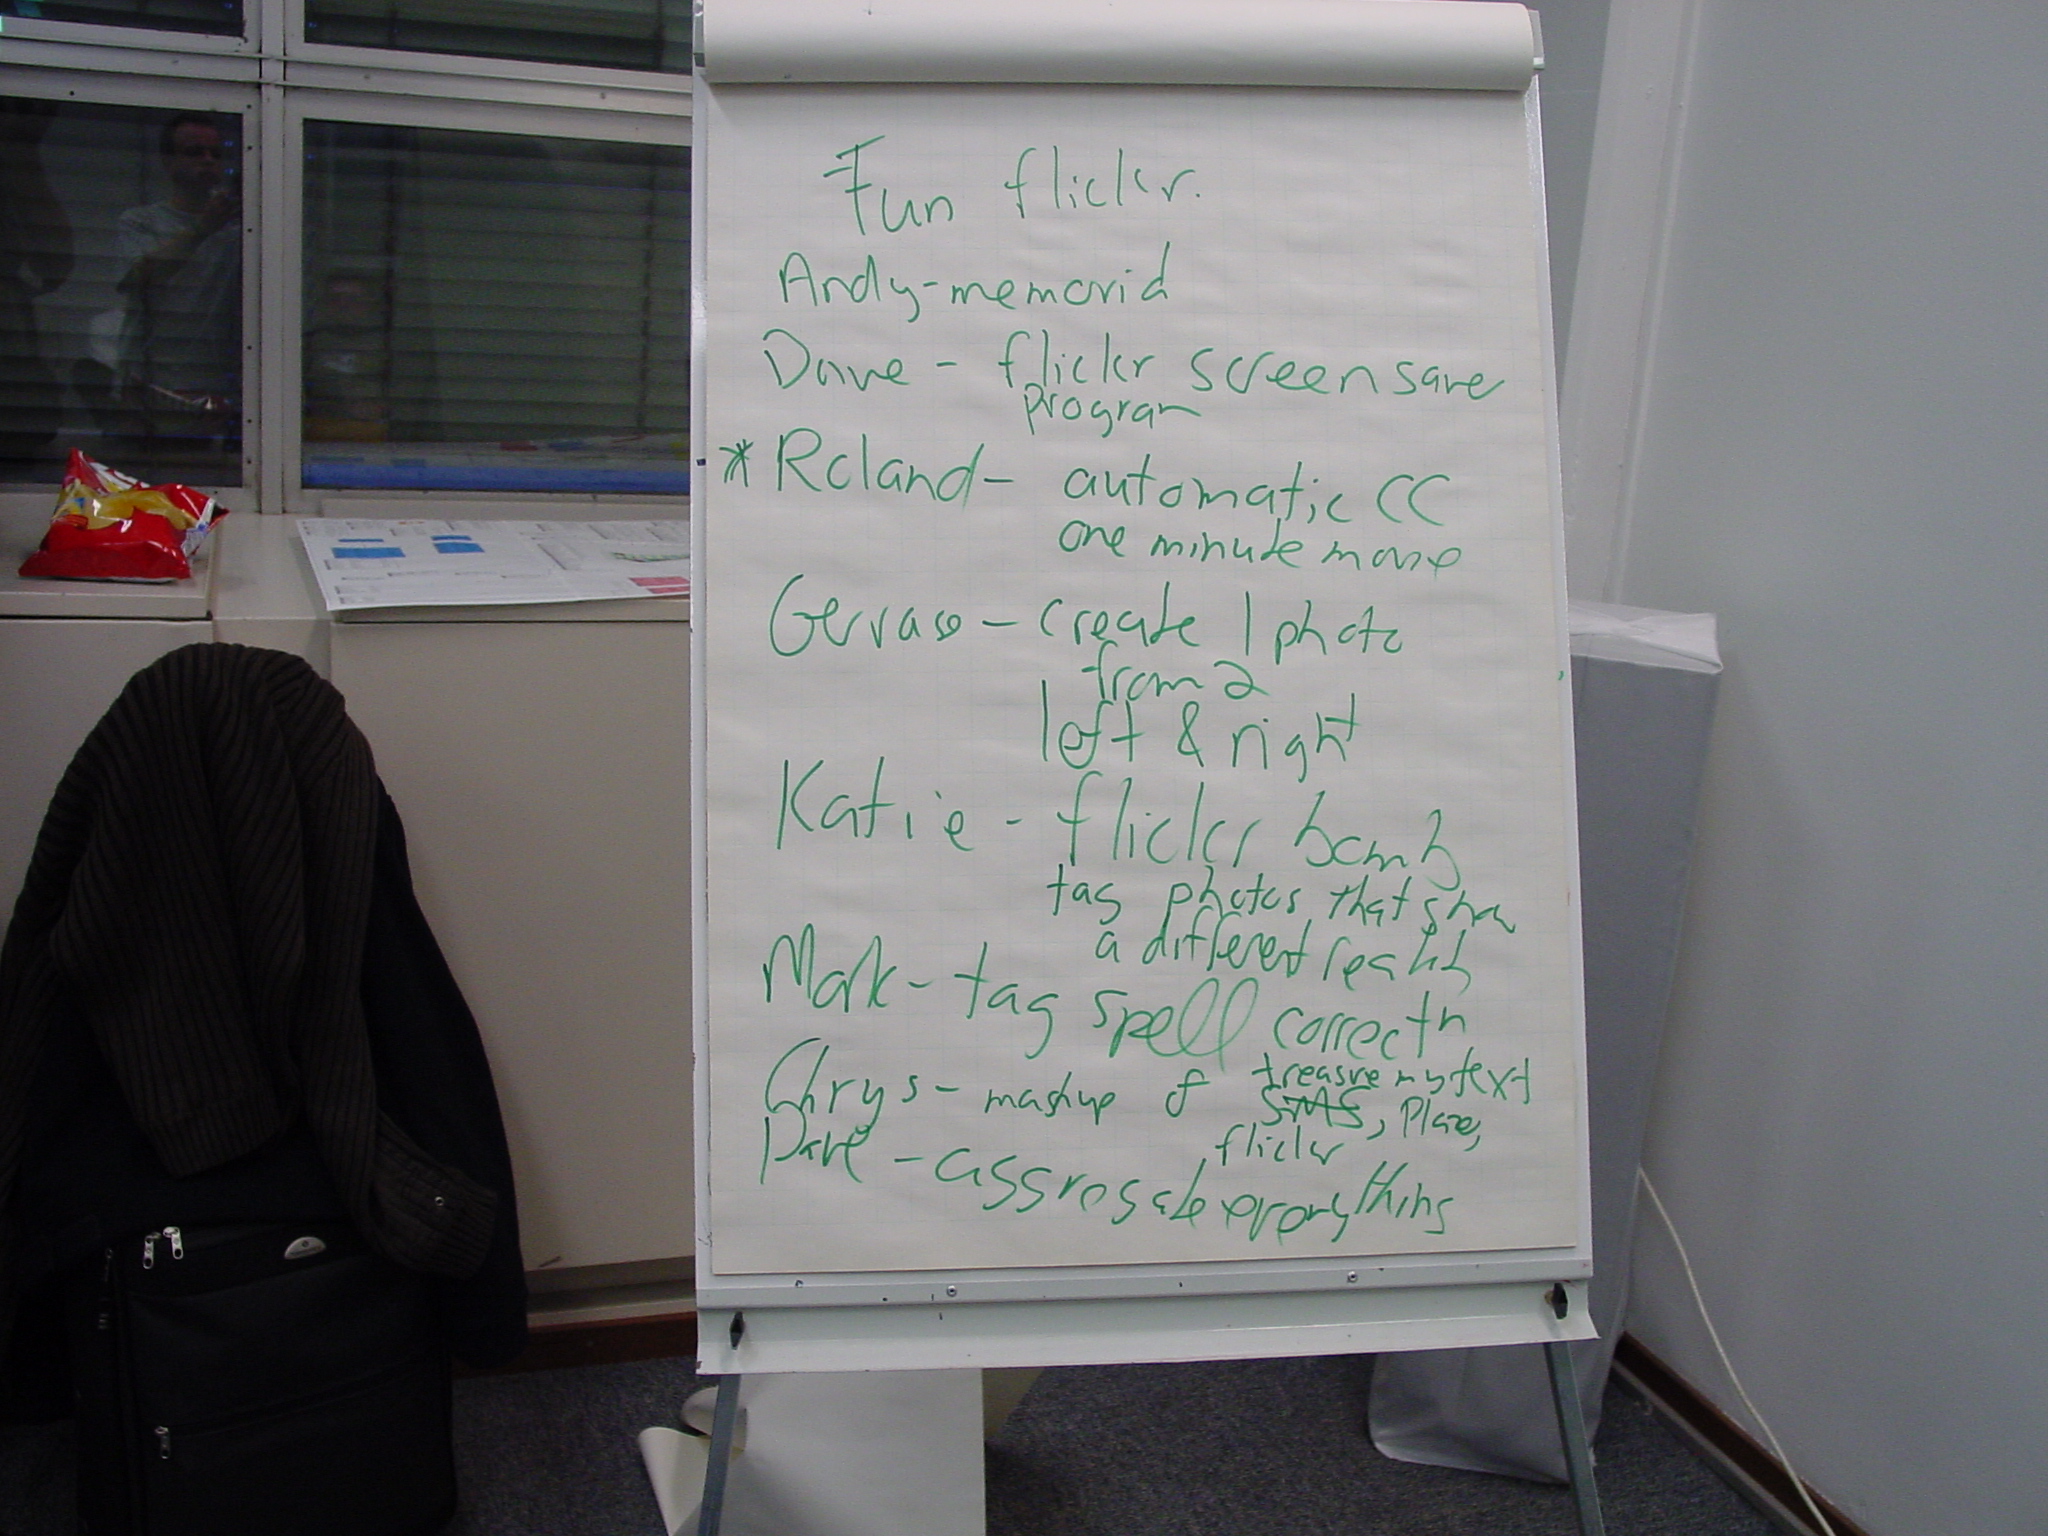 Fun flickr.
Andy - memorid
Dave - flickr screen save
program
* Roland - automatic CC
one minute movie
Gervase - create 1 photo
from 2
left & right
Katie - flickr bomb
tag photos that show
a different reality
Mark - tag spell correctn
Chrys - mashup of treasure mytext
SMS, Plazes,
flickr
Dave - aggregate everything